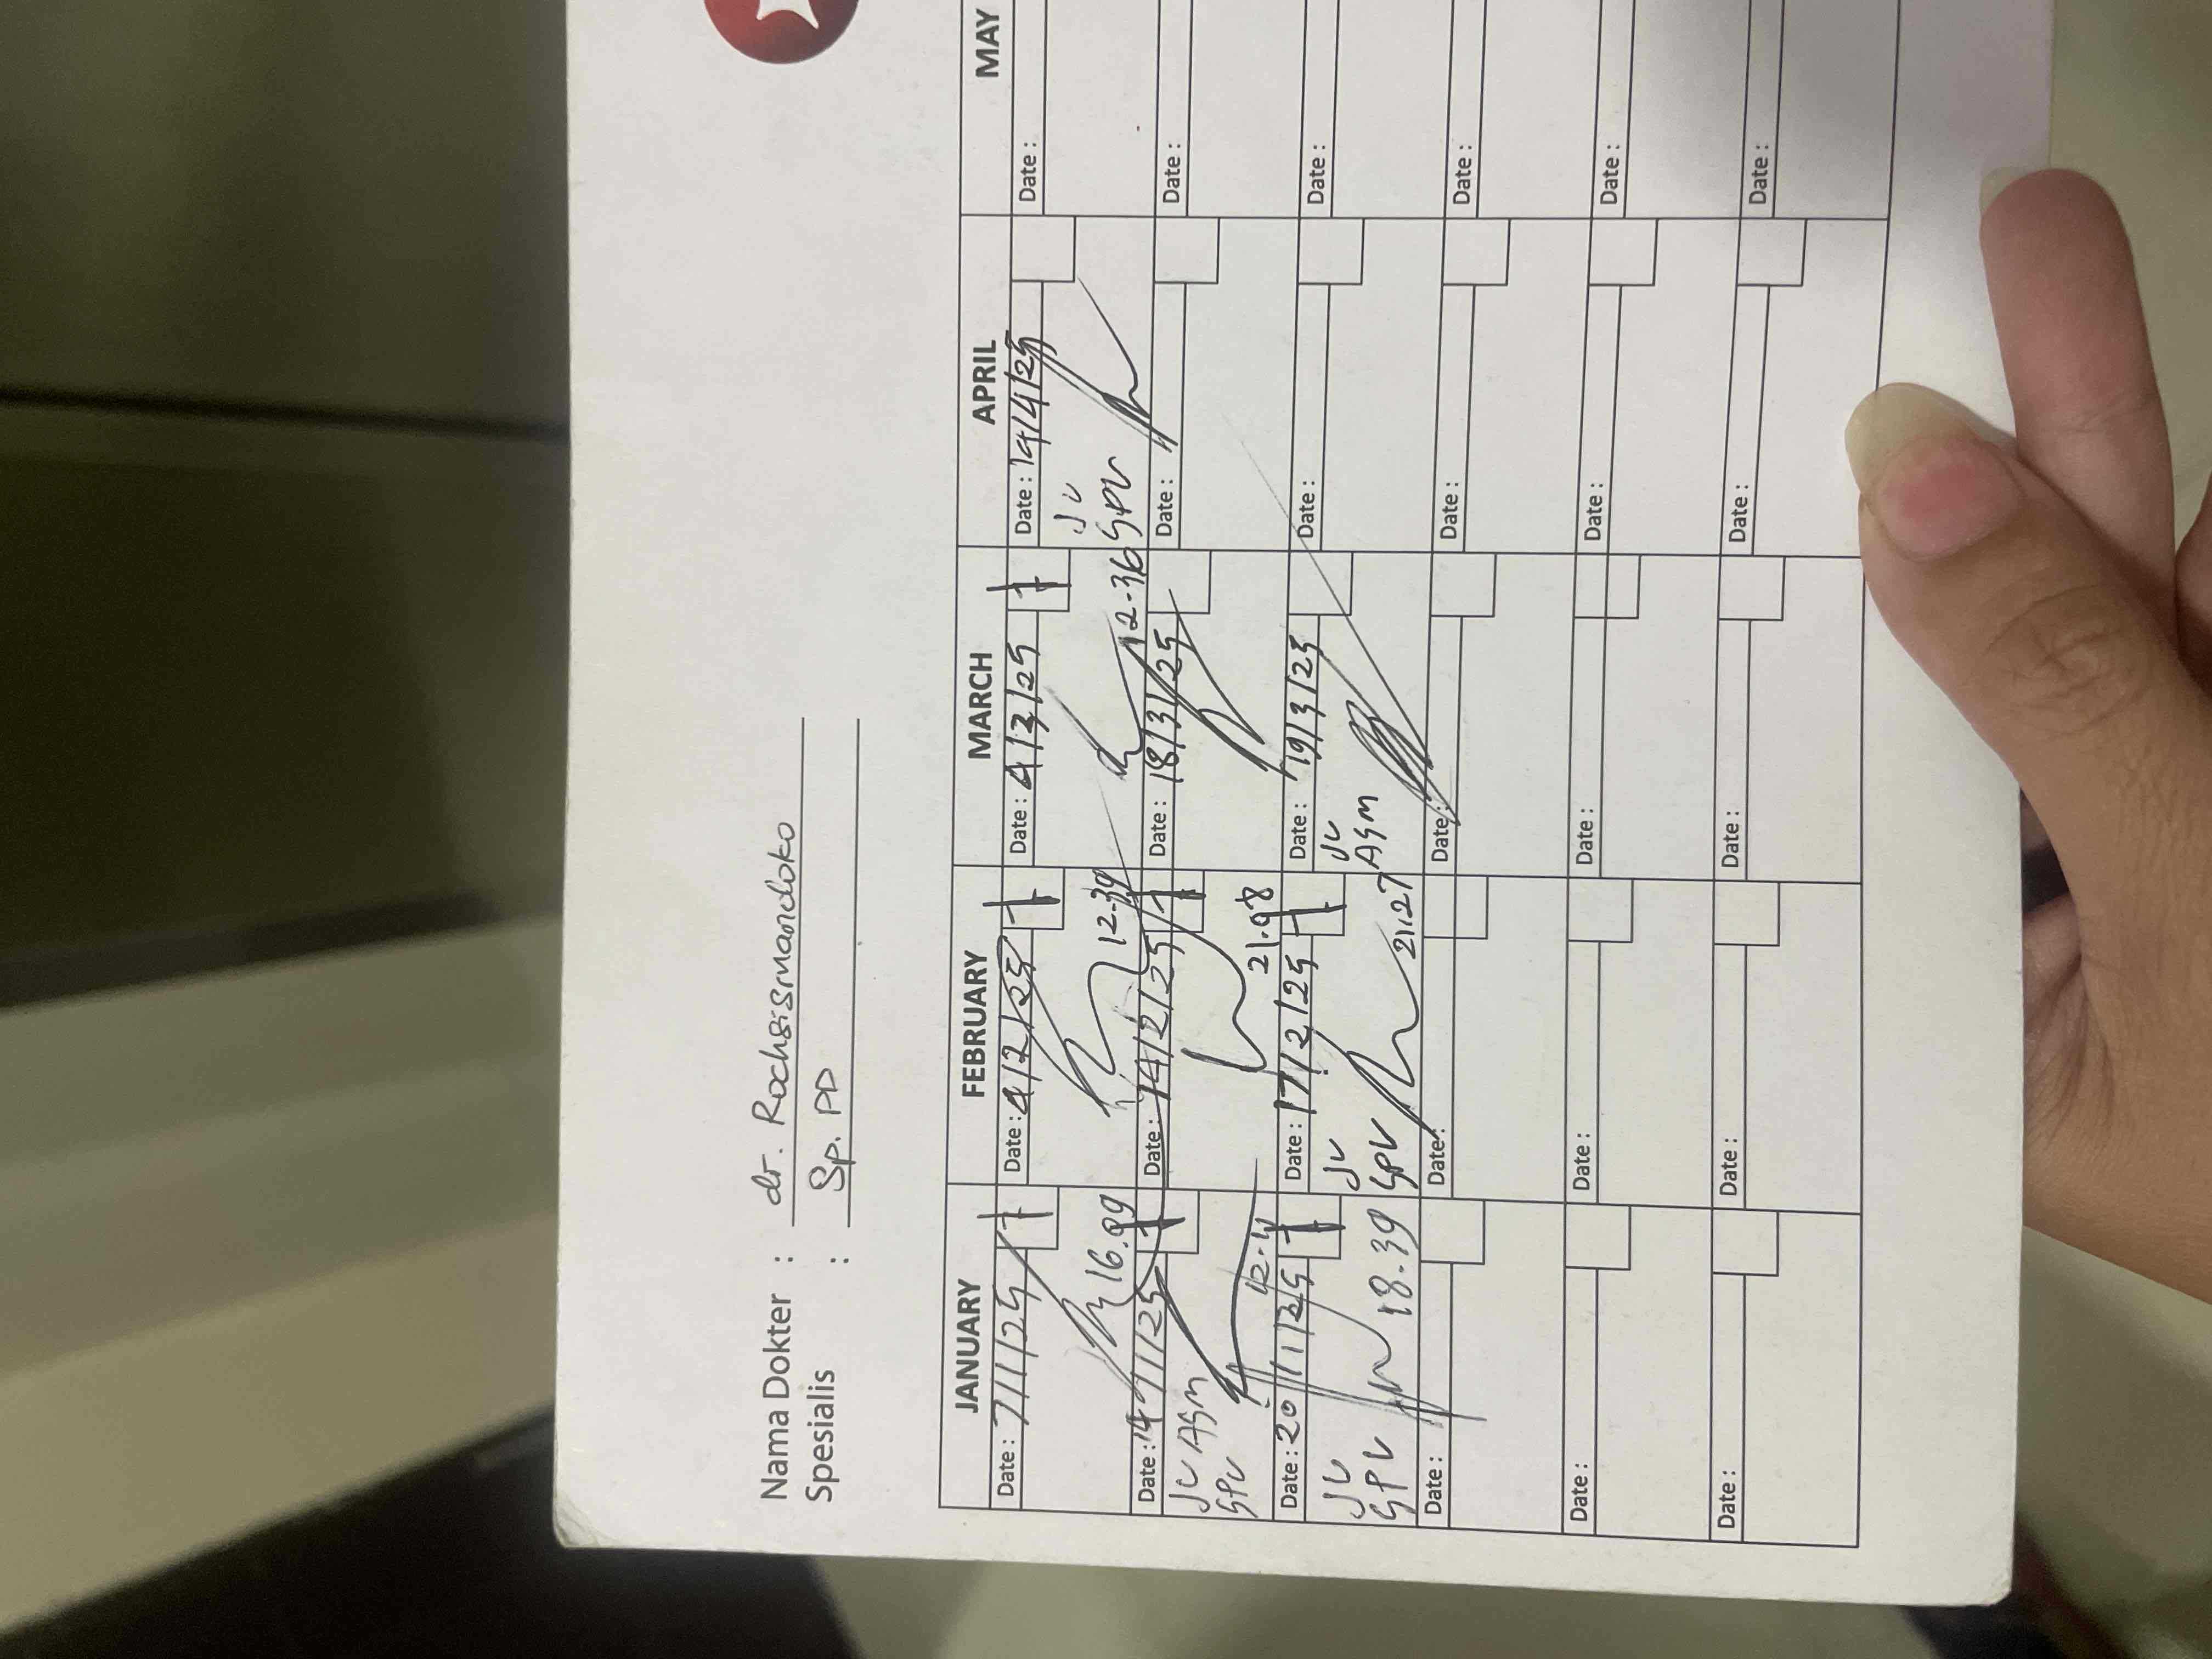 Nama Dokter : dr. Rochsismandoko
Spesialis : Sp. PD
JANUARY FEBRUARY MARCH APRIL MAY
Date : 7/1/25 Date : 4/2/25 Date : 4/3/25 Date : 14/4/25 Date :
16.99 12-39 12-36 JV SPV
Date : 14/1/25 Date : 14/2/25 Date : 18/3/25 Date : Date :
JV ASM
SPV 21.08
Date : 20/1/25 Date : 17/2/25 Date : 19/3/25 Date : Date :
JV JV JV
SPV 18.39 SPV 21.27 ASM
Date : Date : Date : Date : Date :
Date : Date : Date : Date : Date :
Date : Date : Date : Date : Date :